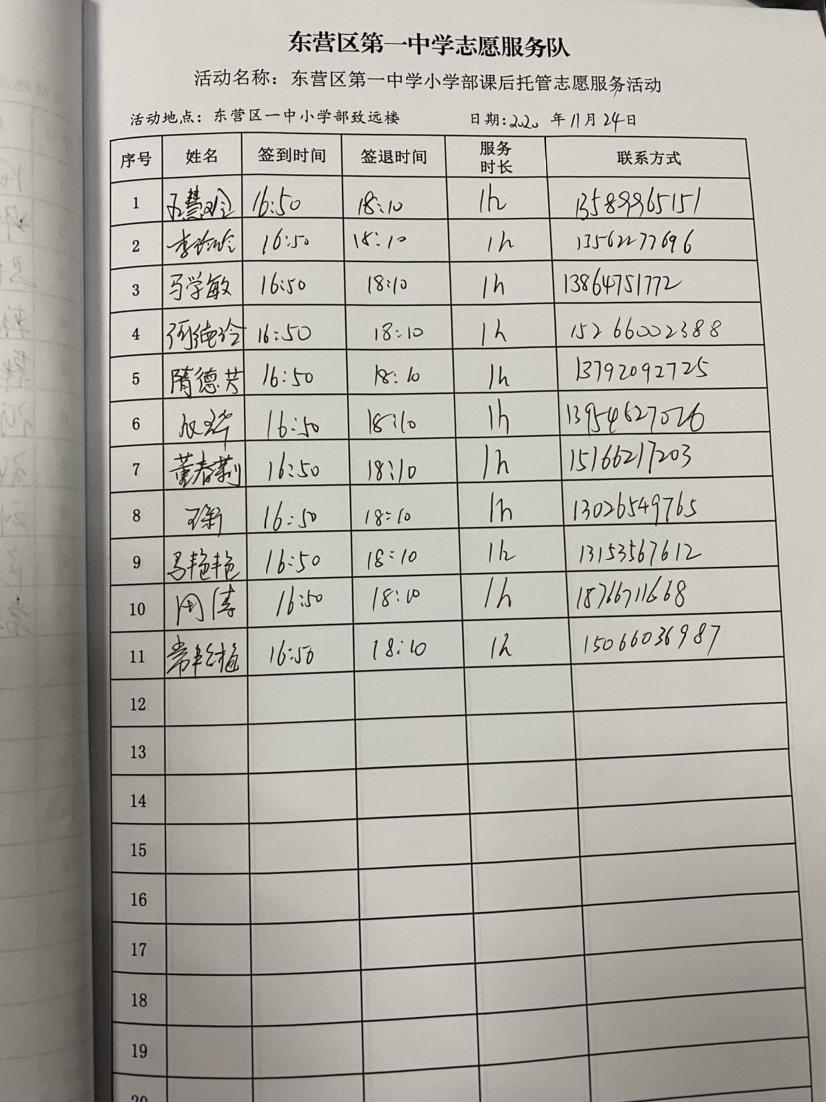 东营区第一中学志愿服务队
活动名称：东营区第一中学小学部课后托管志愿服务活动
活动地点：东营区一中小学部致远楼 日期:2020 年 11 月 24 日
序号 姓名 签到时间 签退时间 服务时长 联系方式
1 16:50 18:10 1h 13589965151
2 李玲玲 16:50 18:10 1h 13562277696
3 马学敏 16:50 18:10 1h 13864751772
4 16:50 18:10 1h 15266002388
5 隋德芳 16:50 18:10 1h 13792092725
6 16:50 18:10 1h 13954627026
7 董春莉 16:50 18:10 1h 15166217203
8 16:50 18:10 1h 13026549765
9 马艳艳 16:50 18:10 1h 13153567612
10 周涛 16:50 18:10 1h 18766711668
11 常艳梅 16:50 18:10 1h 15066036987
12
13
14
15
16
17
18
19
20